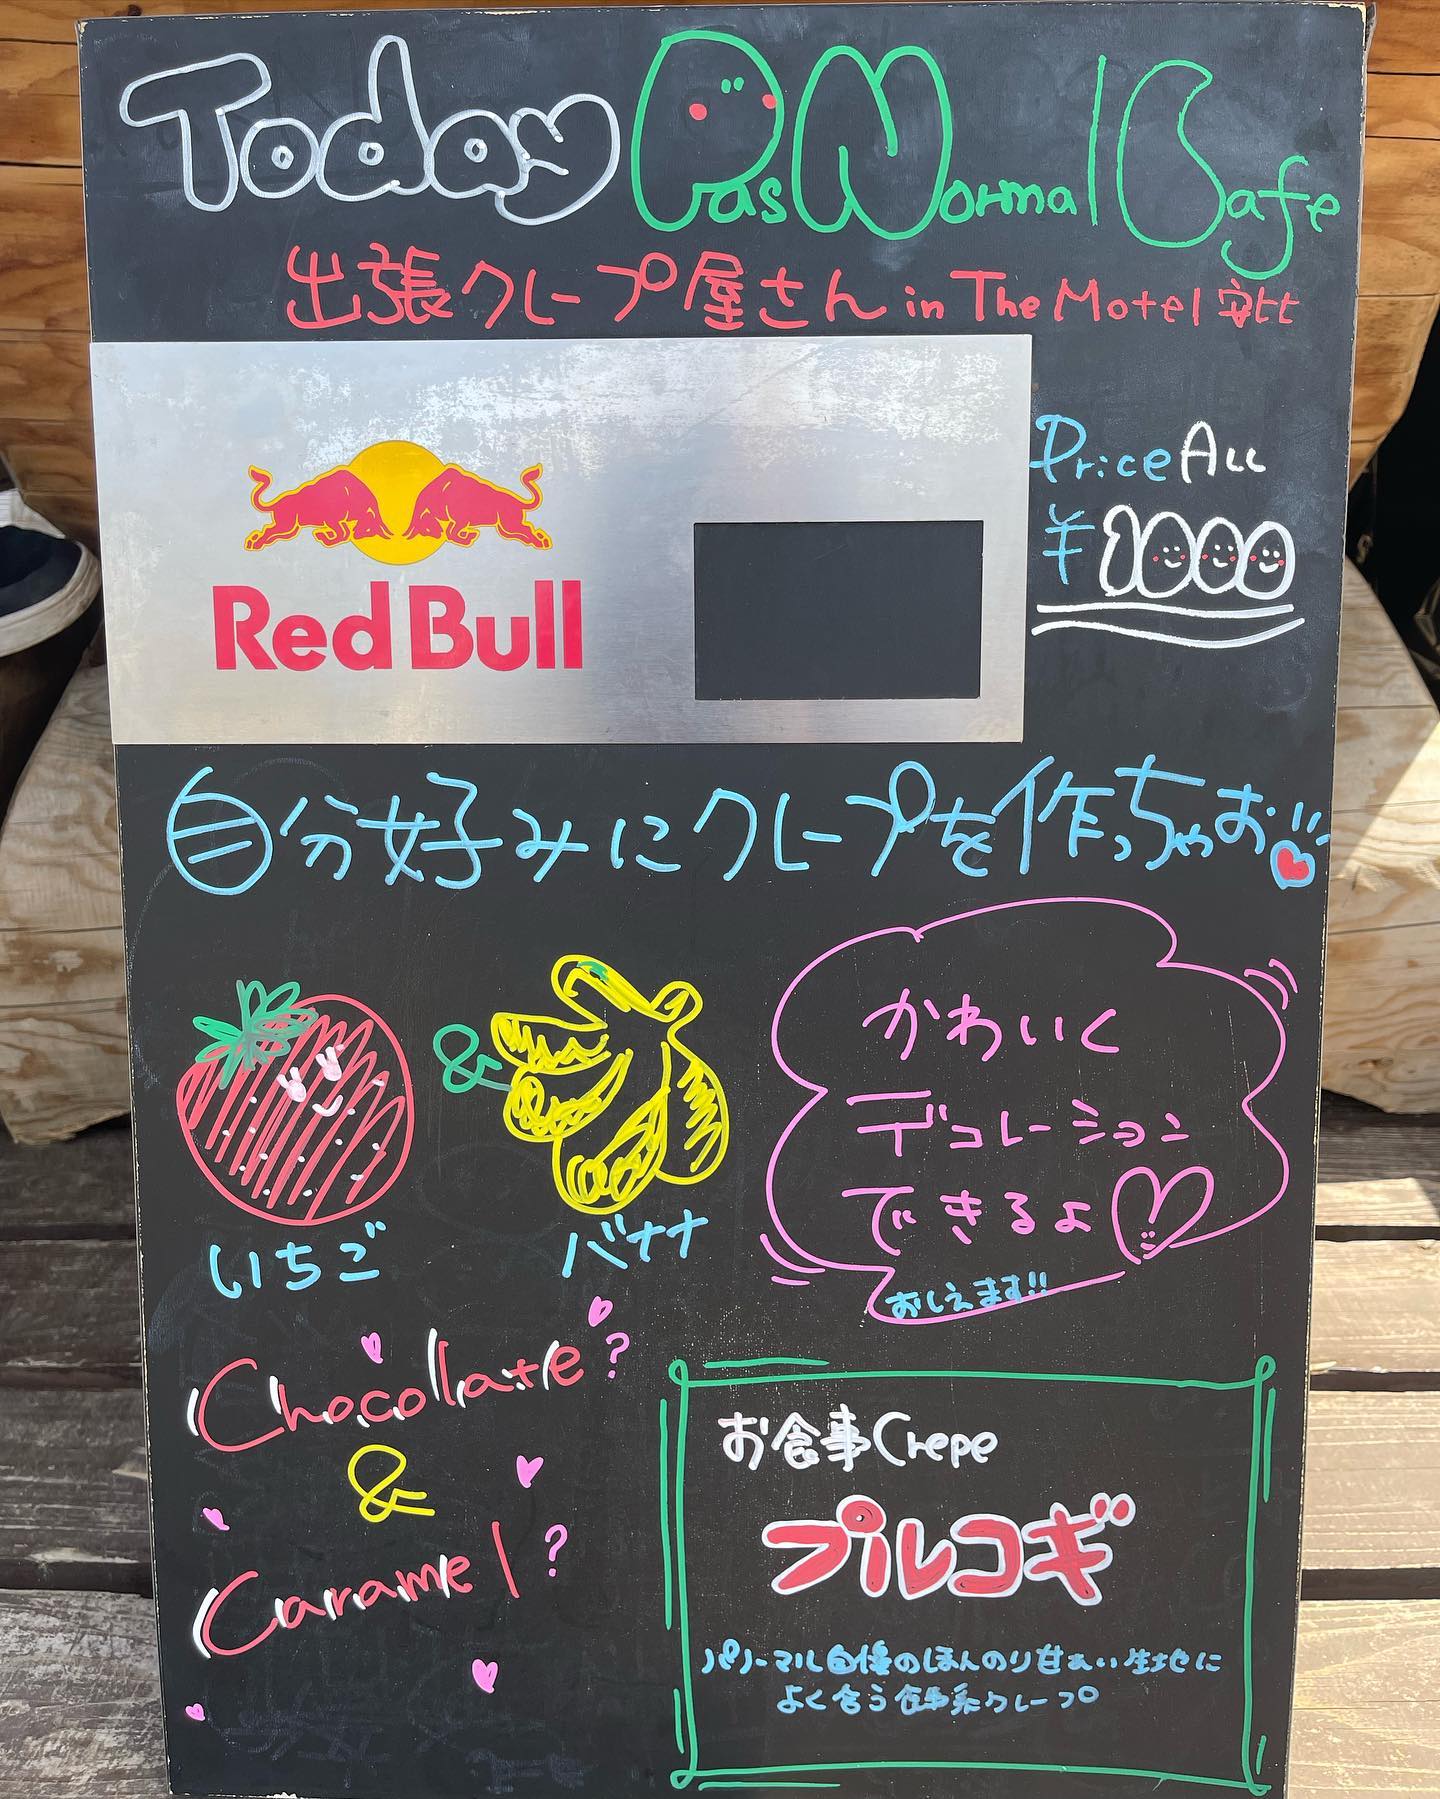 Today Pas Normal Cafe
出張クレープ屋さん in The Motel 安比
Red Bull
Price All
¥1000
自分好みにクレープを作っちゃお
&
いちご
バナナ
かわいく
デコレーション
できるよ
おしえます!!
Chocollate?
&
Caramel?
お食事Crepe
プルコギ
パノーマル自慢のほんのり甘あい生地に
よく合う食事系クレープ